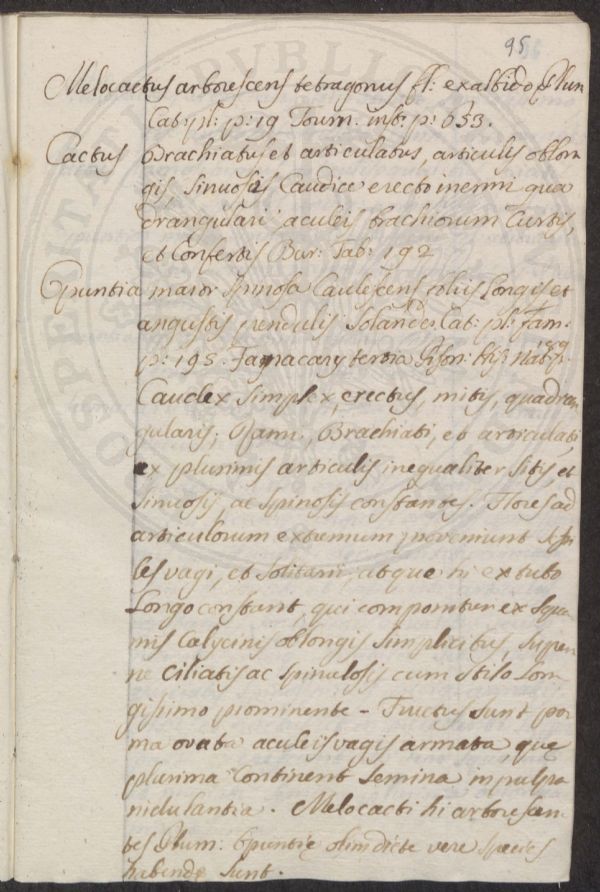 95
Melocactus arborescens tetragonus fl: ex albido Plum
Cat: pl: p: 19 Tourn. inst: p: 653.
Cactus Brachiatus et articulatus, articulis oblon
gis, sinuosis Caudice erecto inermi qua
drangulari aculeis brachiorum Curtis,
et Confertis Bur: Tab: 192
Opuntia maior spinosa Caulescens foliis longis et
angustis pendulis Solander Cat: pl: Jam:
p: 195. Jamacary tertia Pison: hist: Nat:
Caudex simplex, erectus, mitis, quadran
gularis; Rami Brachiati, et articulati,
ex plurimis articulis inequaliter sitis, et
sinuosis, ac spinosis constantes. Flores ad
articulorum extremum proveniunt
les vagi, et solitarii, atque hi ex tubo
Longo constant, qui componitur ex squa
mis Calycinis oblongis simplicibus, super
ne ciliatis ac spinulosis cum stilo lon
gissimo prominente - Fructus sunt po
ma ovata aculeis vagis armata, quę
plurima Continent semina in pulpa
nidulantia. Melocacti hi arboresan
tes Plum: Opuntię olim dictę vere species
habendę sunt.